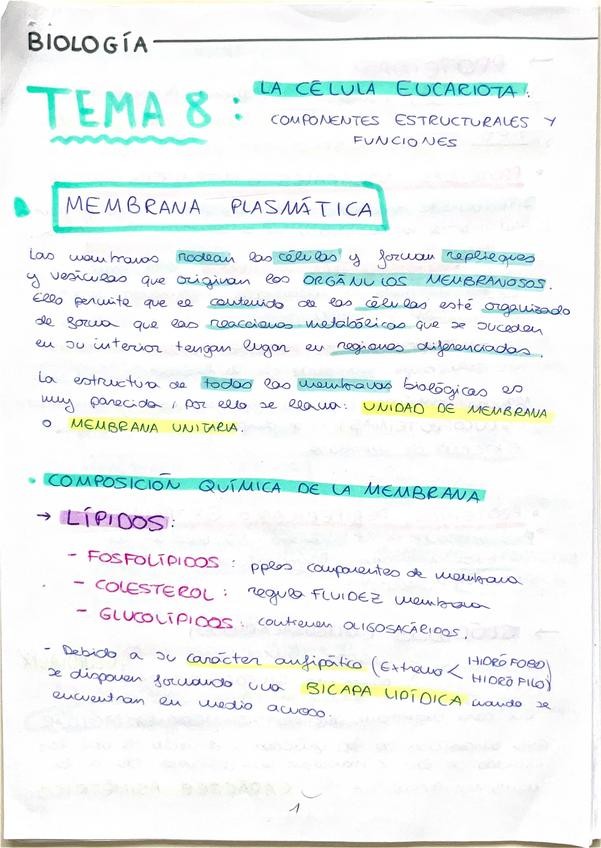 BIOLOGÍA
TEMA 8:
LA CÉLULA EUCARIOTA.
COMPONENTES ESTRUCTURALES Y
FUNCIONES
MEMBRANA PLASMÁTICA
Las membranas rodean las células y forman repliegues
y vesículas que originan los ORGÁNULOS MEMBRANOSOS.
Ello permite que el contenido de las células esté organizado
de forma que las reacciones metabólicas que se suceden
en su interior tengan lugar en regiones diferenciadas.
La estructura de todas las membranas biológicas es
muy parecida, por ello se llama: UNIDAD DE MEMBRANA
o MEMBRANA UNITARIA.
· COMPOSICIÓN QUÍMICA DE LA MEMBRANA
→ LÍPIDOS:
- FOSFOLÍPIDOS: pples componentes de membrana
- COLESTEROL: regula FLUIDEZ membrana
- GLUCOLÍPIDOS: contienen OLIGOSACÁRIDOS.
- Debido a su carácter anfipático (Extremo < HIDRÓFOBO
HIDRÓFILO)
se disponen formando una BICAPA LIPÍDICA cuando se
encuentran en medio acuoso.
1